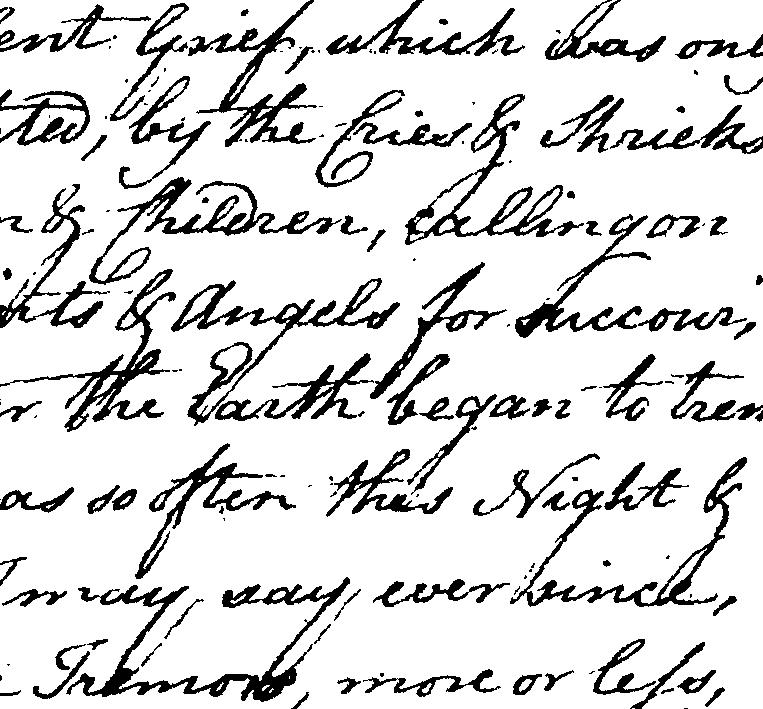 ent Grief, which was only
ted, by the Cries & Shrieks
n & Children, calling on
ints & Angels for succour,
er the Earth began to trem
as so often this Night &
I may say ever since,
Tremors, more or leſs,